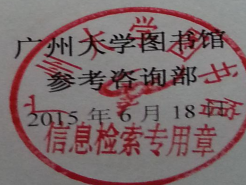 广州大学图书馆
参考咨询部
2015年6月18日
信息检索专用章